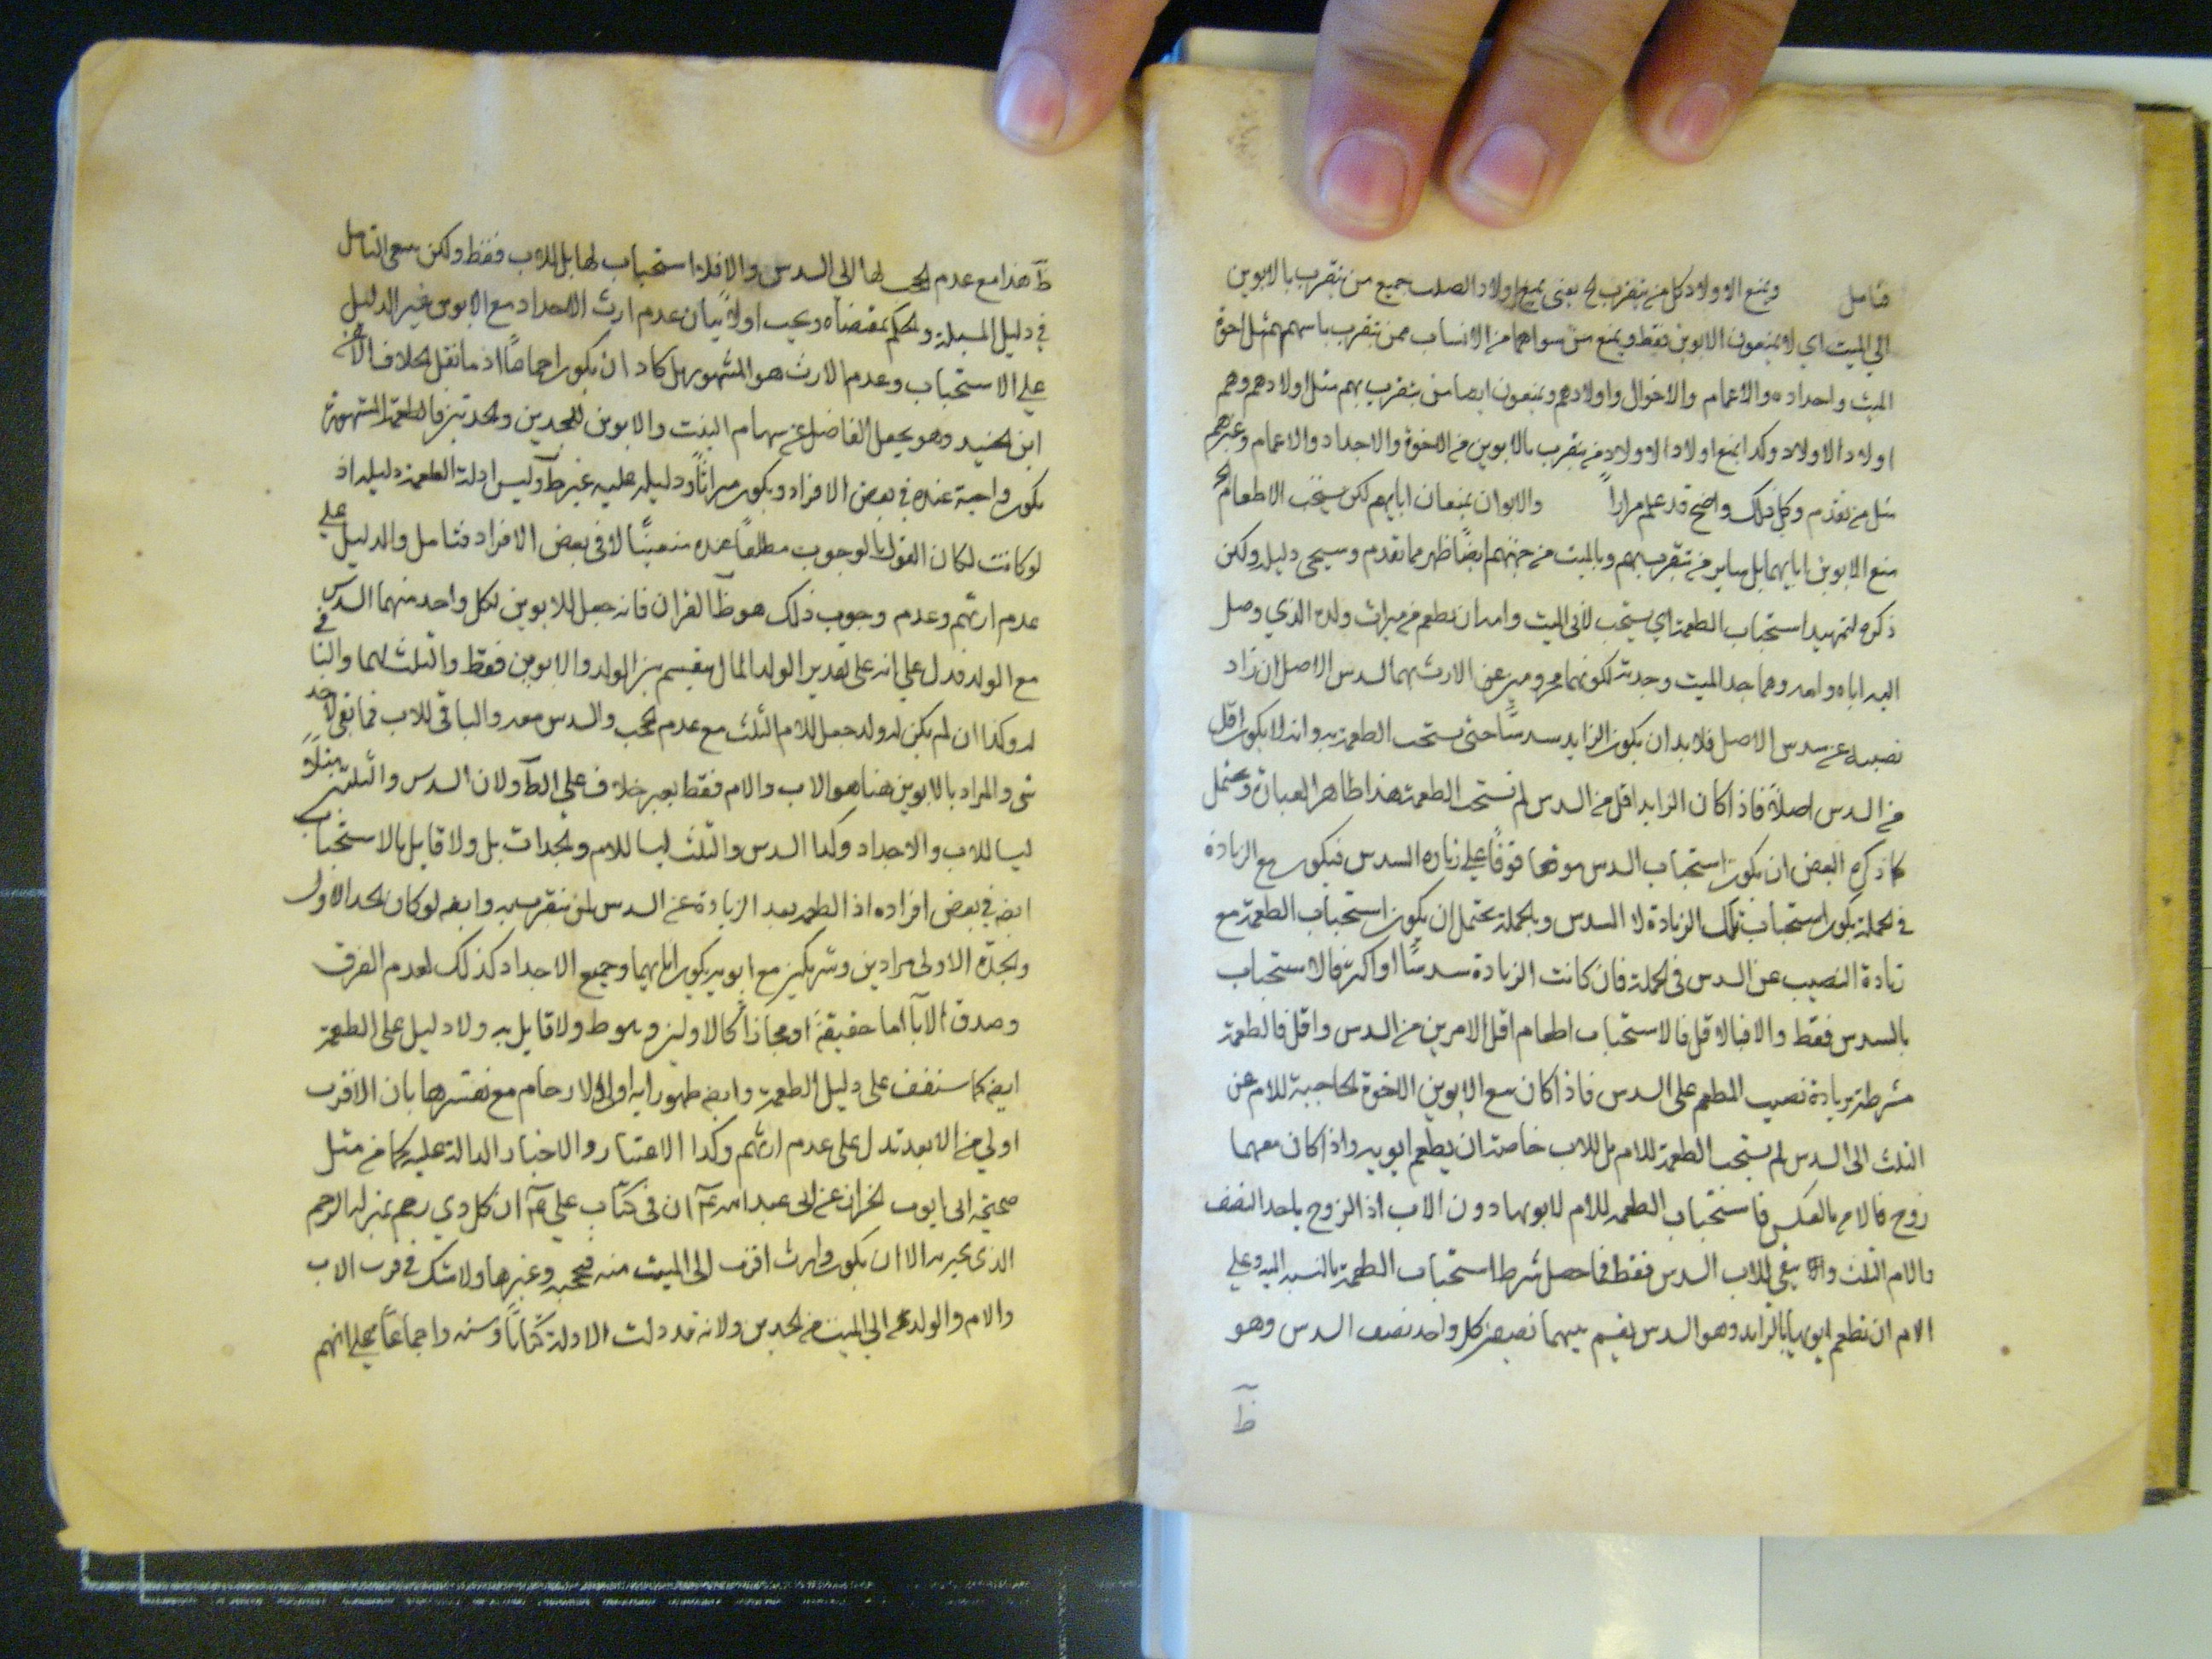 فتامل ويمنع الاولاد كل من يتقرب الخ يعني يمنع اولاد الصلب جميع من يتقرب بالابوين
الي الميت اي لا يمنعون الابوين فقط ويمنع من سواهما من الانساب ممن يتقرب باسهم مثل اخوة
الميت واجداده والاعمام والاخوال واولادهم ويمنعون ايضا من يتقرب بهم مثل اولادهم وهم
اولاد الاولاد وكذا يمنع اولاد الاولاد من يتقرب بالابوين من الاخوة والاجداد والاعمام وغيرهم
مثل من تقدم وكل ذلك واضح قد علم مرارا والابوان يمنعان ابايهم لكن يستحب الاطعام الخ
منع الابوين ابايهما بل ساير من يتقرب بهم وبالميت من جهتهم ايضا ظهر مما تقدم وسيجي دليله ولكن
ذكره لتمهيد استحباب الطعمة اي يستحب لابي الميت وامه ان يطعم من ميراث ولده الذي وصل
اليه اباه وامه وهما جد الميت وجدته لكونهما محرومين عن الارث بهما السدس الاصل ان زاد
نصيبه عن سدس الاصل فلابد ان يكون الزايد سدسا حتى تستحب الطعمة به وانه لا يكون اقل
من السدس اصلا فاذا كان الزايد اقل من السدس لم تستحب الطعمة هذا ظاهر العبارة ويحتمل
كما ذكره البعض ان يكون استحباب السدس موقوفا على زيادة السدس فيكون مع الزيادة
في الجملة يكون استحباب تلك الزيادة لا السدس وبالجملة يحتمل ان يكون استحباب الطعمة مع
زيادة النصيب عن السدس في الجملة فان كانت الزيادة سدسا او اكثر فالاستحباب
بالسدس فقط والا فبالاقل فالاستحباب اطعام اقل الامرين من السدس واقل فالطعمة
مشرطة بزيادة نصيب المطعم على السدس فاذا كان مع الابوين الاخوة الحاجبة للام عن
الثلث الى السدس لم يستحب الطعمة للام بل للاب خاصة ان يطعم ابويه واذا كان معهما
زوج فالام بالعكس فاستحباب الطعمة للام لابويها دون الاب اذ الزوج ياخذ النصف
والام الثلث ويبقى للاب السدس فقط فما حصل شرط استحباب الطعمة بالنسبة اليه وعلي
الام ان تطعم ابويها بالزايد وهو السدس يقسم بينهما نصفين كل واحد نصف السدس وهو
ظ
ظ هذا مع عدم الحجب لها الى السدس والا فلا استحباب لها بل للاب فقط ولكن ينبغي التامل
في دليل المسئلة والحكم بمقتضاه ويجب اولا بيان عدم ارث الاجداد مع الابوين غير الدليل
علي الاستحباب وعدم الارث هو المشهور بل كاد ان يكون اجماعا اذ ما نقل الخلاف الا عن
ابن الجنيد وهو يجعل الفاضل عن سهام البنت والابوين للجدين والجدتين فالطعمة المشهورة
يكون واجبة عنده في بعض الافراد ويكون ميراثا ودليله عليه غير ظ وليس ادلة الطعمة دليله اذ
لو كانت لكان القول بالوجوب مطلقا عنده متعينا لا في بعض الافراد فتامل والدليل علي
عدم ارثهم وعدم وجوب ذلك هو ظ القران فانه جعل للابوين لكل واحد منهما السدس
مع الولد فدل علي انه على تقدير الولد المال يقسم بين الولد والابوين فقط والثلث لهما والباقي
له وكذا ان لم يكن له ولد جعل للام الثلث مع عدم الحجب والسدس معه والباقي للاب فما بقى لاحد
شي والمراد بالابوين هنا هو الاب والام فقط بغير خلاف على الظ ولان السدس والثلثين
ليسا للاب والاجداد وكذا السدس والثلث ليسا للام والجدات بل ولا قايل بالاستحباب
ايضه في بعض افراده اذ الطعمة بعد الزيادة عن السدس لمن يتقرب به وايضه لو كان الجد الاول
والجدة الاولى مرادين وشريكين مع ابويه يكون ابايهما وجميع الاجداد كذلك لعدم الفرق
وصدق الآبا اما حقيقة او مجازا كالاولين وهو ظ ولا قايل به ولا دليل على الطعمة
ايضه كما ستقف على دليل الطعمة وايضه ظهور اية اولى الارحام مع تفسيرها بان الاقرب
اولي من الابعد تدل على عدم ارثهم وكذا الاعتبار والاخبار الدالة عليه كما في مثل
صحيحة ابي ايوب الخزاز عن ابي عبد الله عم ان في كتاب علي عم ان كل ذي رحم بمنزلة الرحم
الذي يجر به الا ان يكون وارث اقرب الى الميت منه فيحجبه وغيرها ولا شك في قرب الاب
والام والولد الي الميت من الجدين ولانه قد دلت الادلة كتابا وسنة واجماعا علي انهم